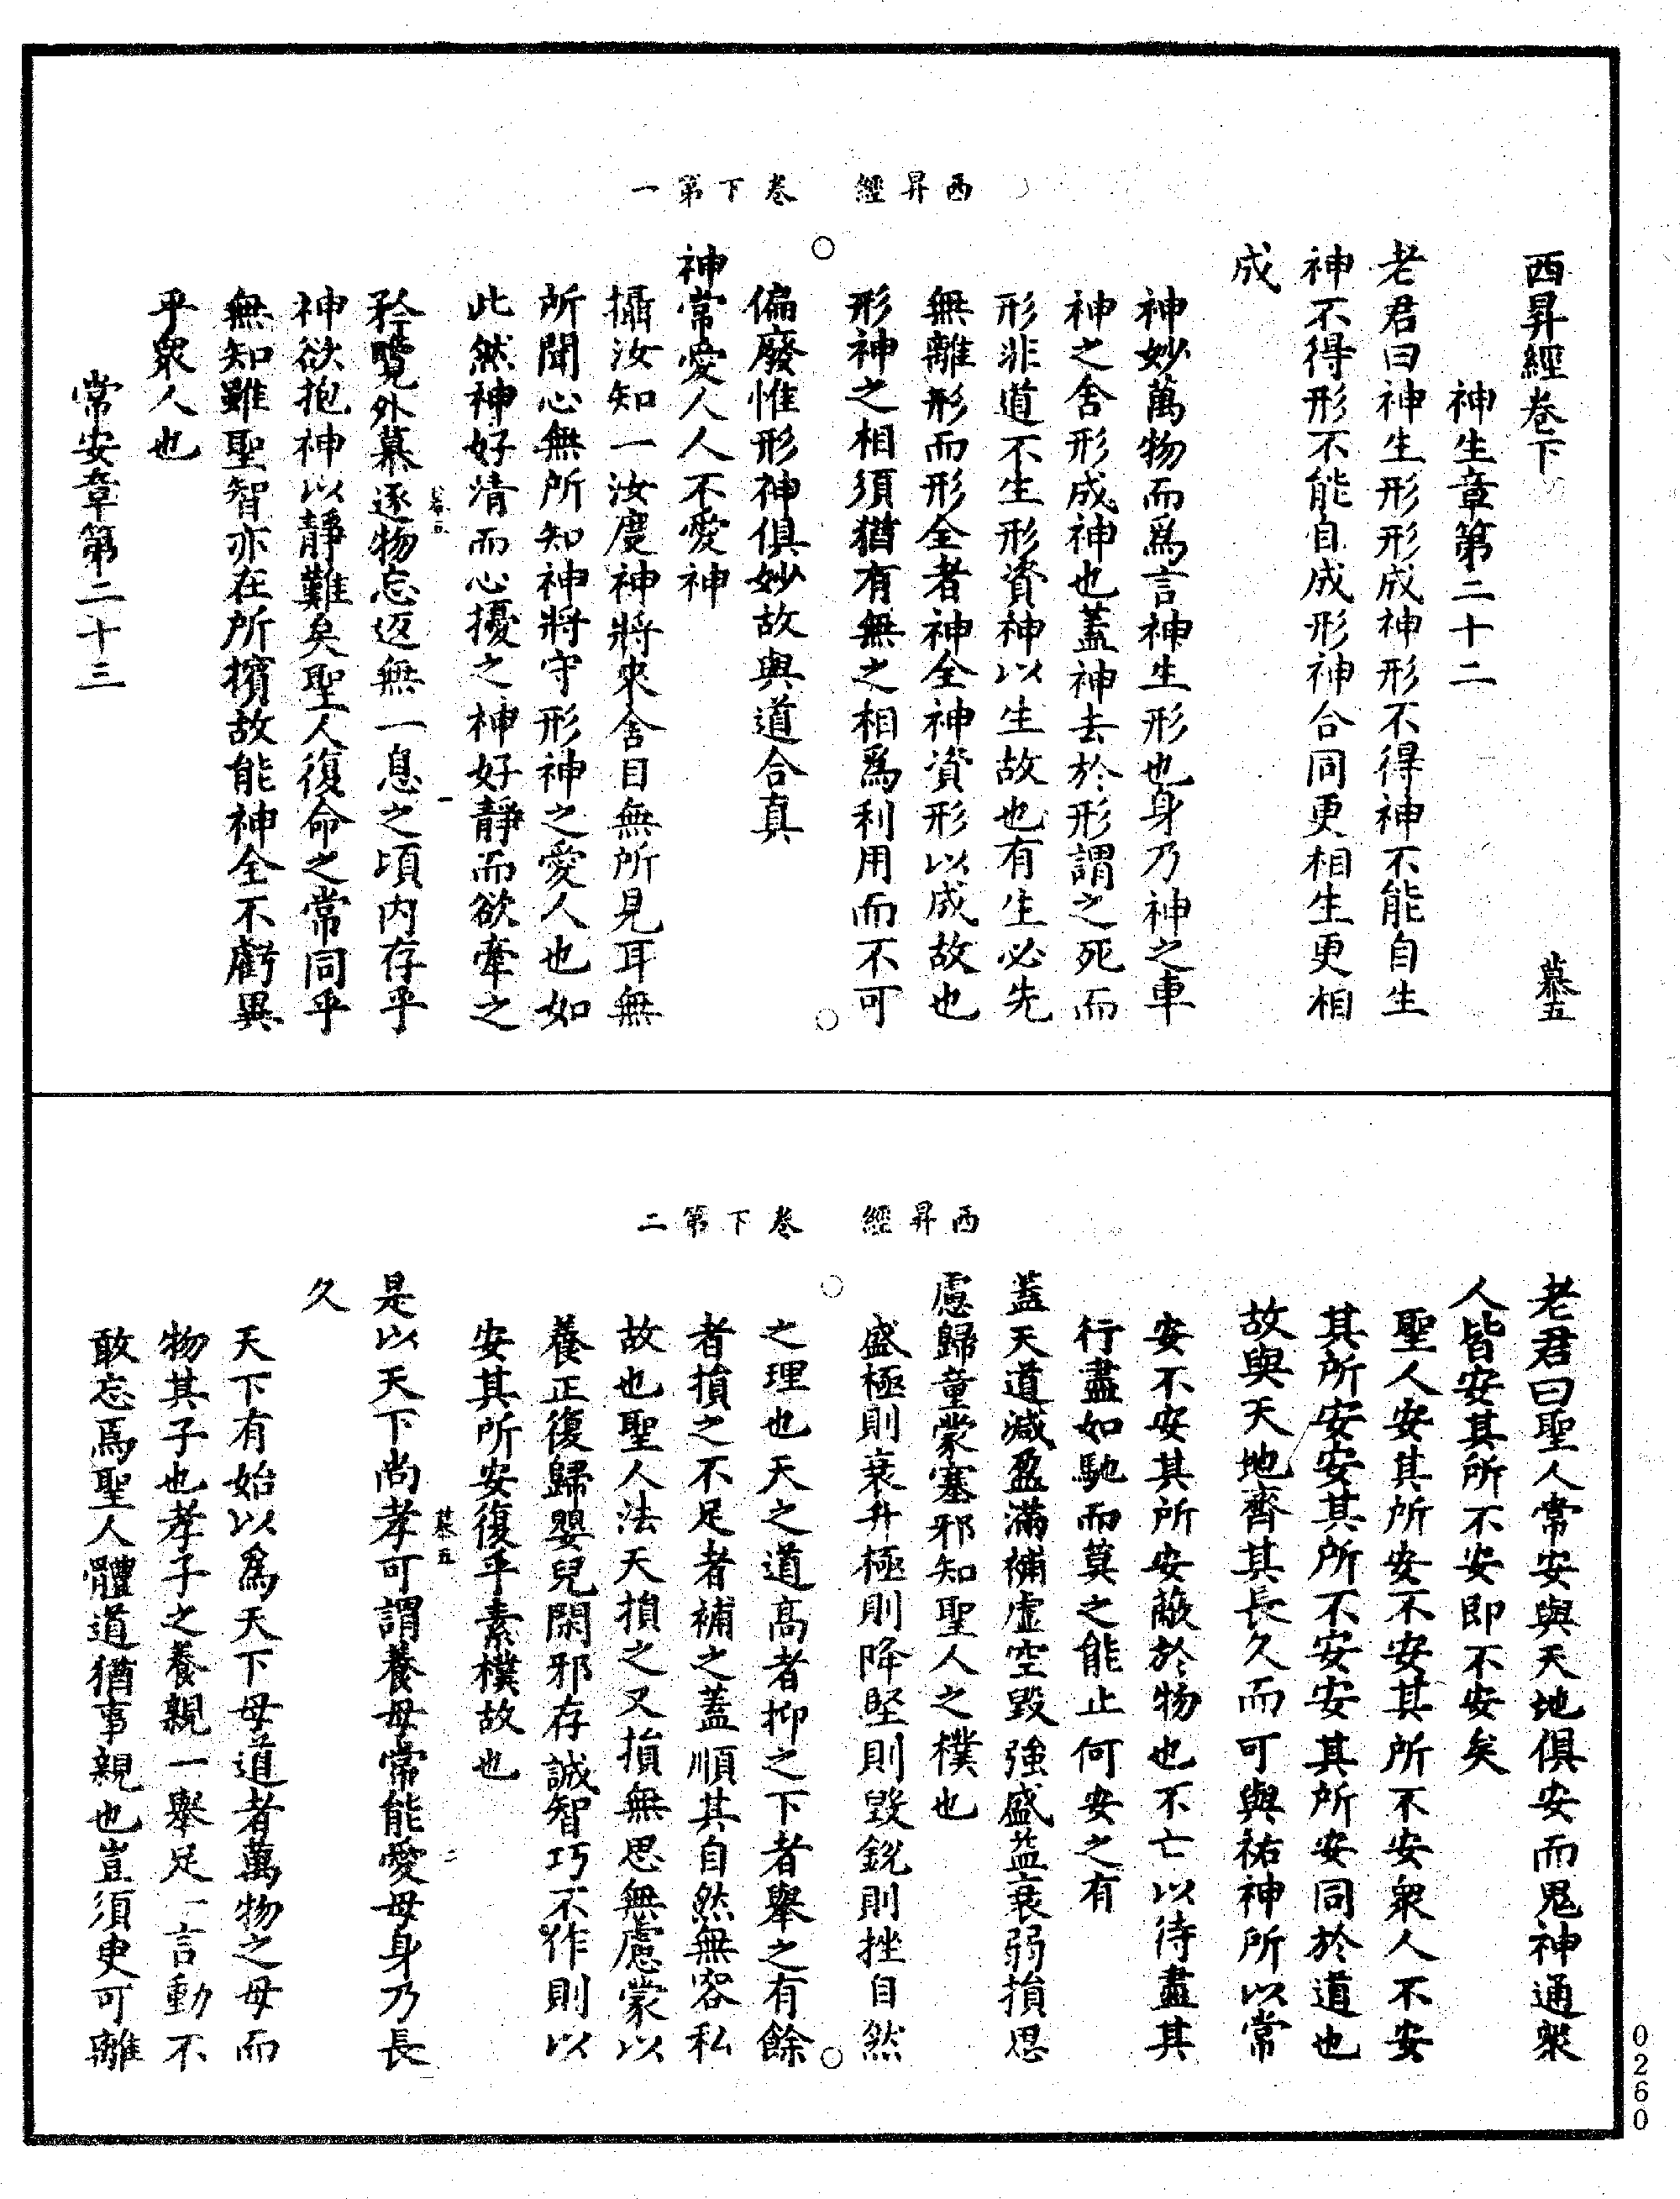 西昇經　卷下第一
西昇經卷下　慕五
神生章第二十二
老君曰神生形形成神形不得神不能自生
神不得形不能自成形神合同更相生更相
成
神妙萬物而爲言神生形也身乃神之車
神之舍形成神也蓋神去於形謂之死而
形非道不生形資神以生故也有生必先
無離形而形全者神全神資形以成故也
形神之相須猶有無之相爲利用而不可
偏廢惟形神俱妙故與道合真
神常愛人人不愛神
攝汝知一汝度神將來舍目無所見耳無
所聞心無所知神將守形神之愛人也如
此然神好清而心擾之神好靜而欲牽之
慕五　一
矜覽外慕逐物忘返無一息之頃内存乎
神欲抱神以靜難矣聖人復命之常同乎
無知雖聖智亦在所擯故能神全不虧異
乎衆人也
常安章第二十三
西昇經　卷下第二
老君曰聖人常安與天地俱安而鬼神通衆
人皆安其所不安即不安矣
聖人安其所安不安其所不安衆人不安
其所安安其所不安安其所安同於道也
故與天地齊其長久而可與祐神所以常
安不安其所安蔽於物也不亡以待盡其
行盡如馳而莫之能止何安之有
蓋天道減盈滿補虚空毀強盛益衰弱損思
慮歸童蒙塞邪知聖人之樸也
盛極則衰升極則降堅則毀銳則挫自然
之理也天之道高者抑之下者舉之有餘
者損之不足者補之蓋順其自然無容私
故也聖人法天損之又損無思無慮蒙以
養正復歸嬰兒閑邪存誠智巧不作則以
安其所安復乎素樸故也
慕五　二
是以天下尚孝可謂養母常能愛母身乃長
久
天下有始以爲天下母道者萬物之母而
物其子也孝子之養親一舉足一言動不
敢忘焉聖人體道猶事親也豈須臾可離
0260